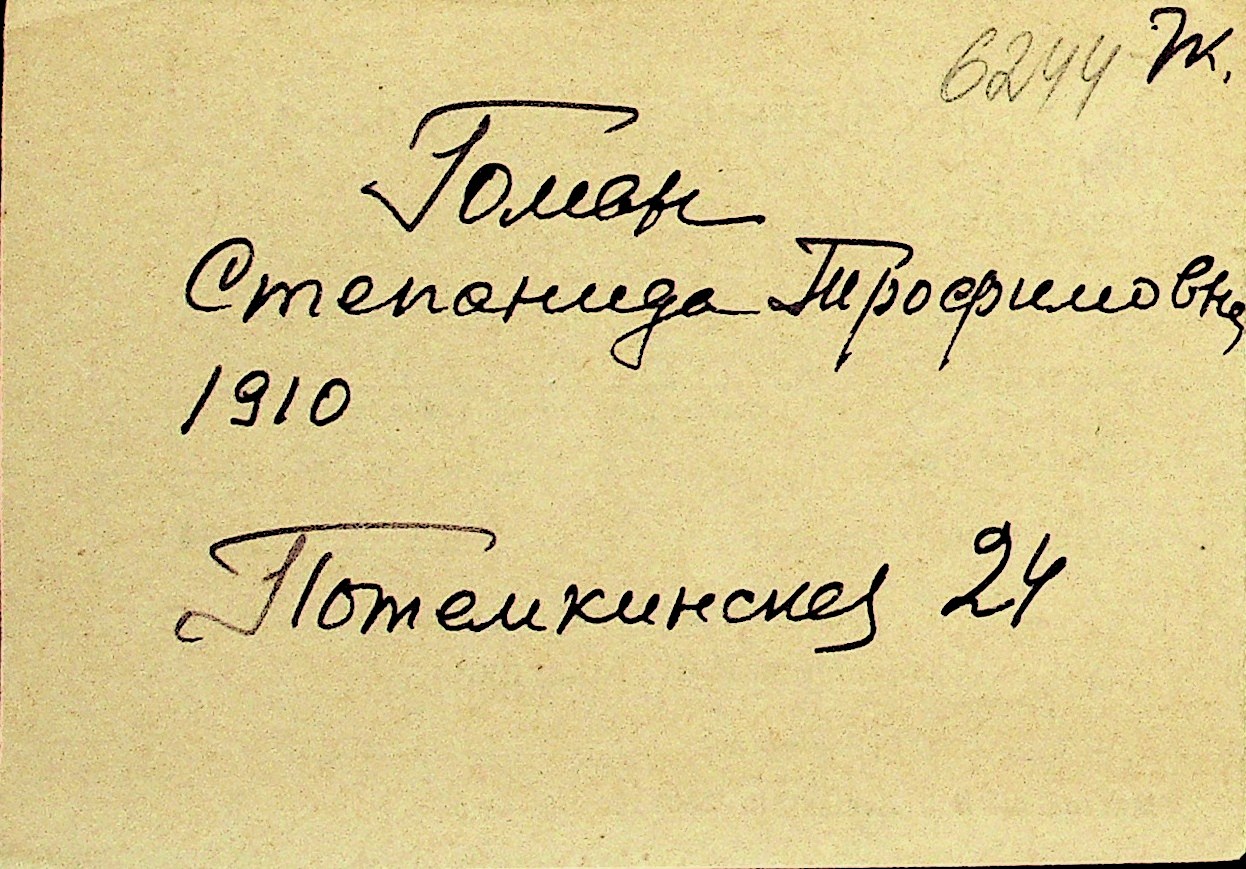 6244 Ж.
Гоман
Степанида Трофимовна
1910
Потемкинская 24